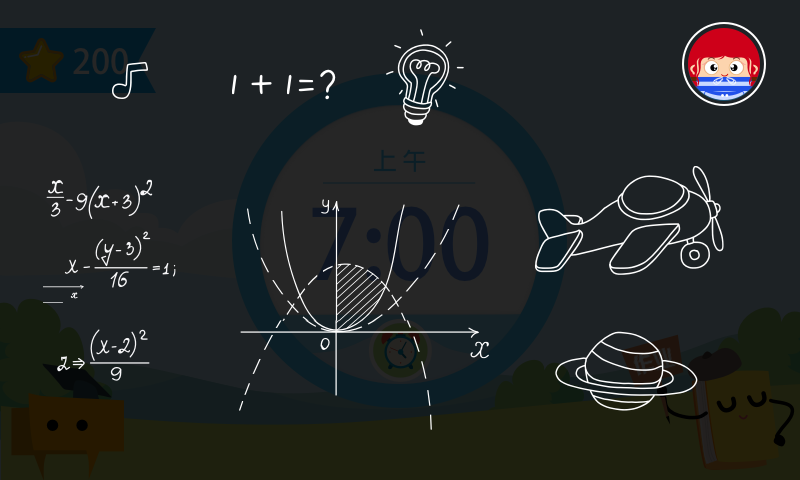 200
1 + 1 = ?
上午
7:00
x/3 - 9(x+3)^2
x - (y-3)^2/16 = 1;
x
2 ⇒ (x-2)^2/9
y
0
x